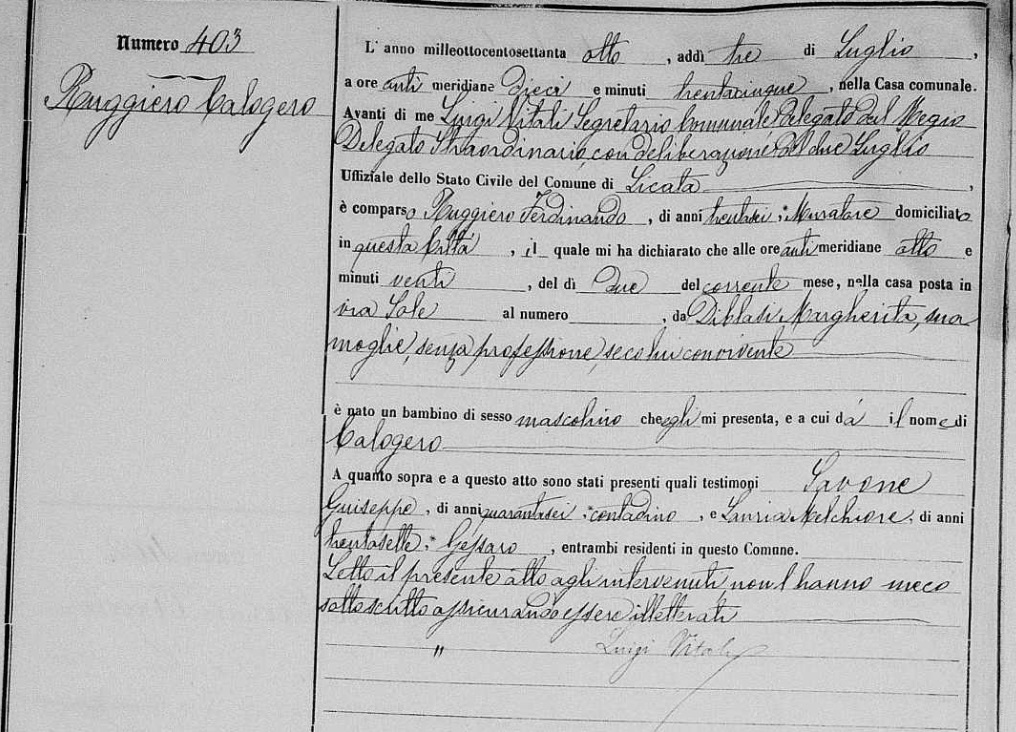 Numero 403
Ruggiero Calogero
L' anno milleottocentosettanta otto , addì tre di Luglio ,
a ore anti meridiane dieci e minuti trentacinque , nella Casa comunale.
Avanti di me Luigi Vitali Segretario Comunale Delegato dal Regio
Delegato Straordinario, con deliberazione del due Luglio
Uffiziale dello Stato Civile del Comune di Licata ,
è comparso Ruggiero Ferdinando , di anni trentasei , Muratore domiciliato
in questa Città , il quale mi ha dichiarato che alle ore anti meridiane otto e
minuti venti , del dì due del corrente mese, nella casa posta in
via Sole al numero , da Diblasi Margherita, sua
moglie, senza professione, seco lui convivente
è nato un bambino di sesso mascolino che egli mi presenta, e a cui dà il nome di
Calogero
A quanto sopra e a questo atto sono stati presenti quali testimoni Savone
Guiseppe , di anni quarantasei , contadino , e Lauria Melchiore , di anni
trentasette , Gessaro , entrambi residenti in questo Comune.
Letto il presente atto agli intervenuti non l hanno meco
sottoscritto assicurando essere illetterati
" Luigi Vitali